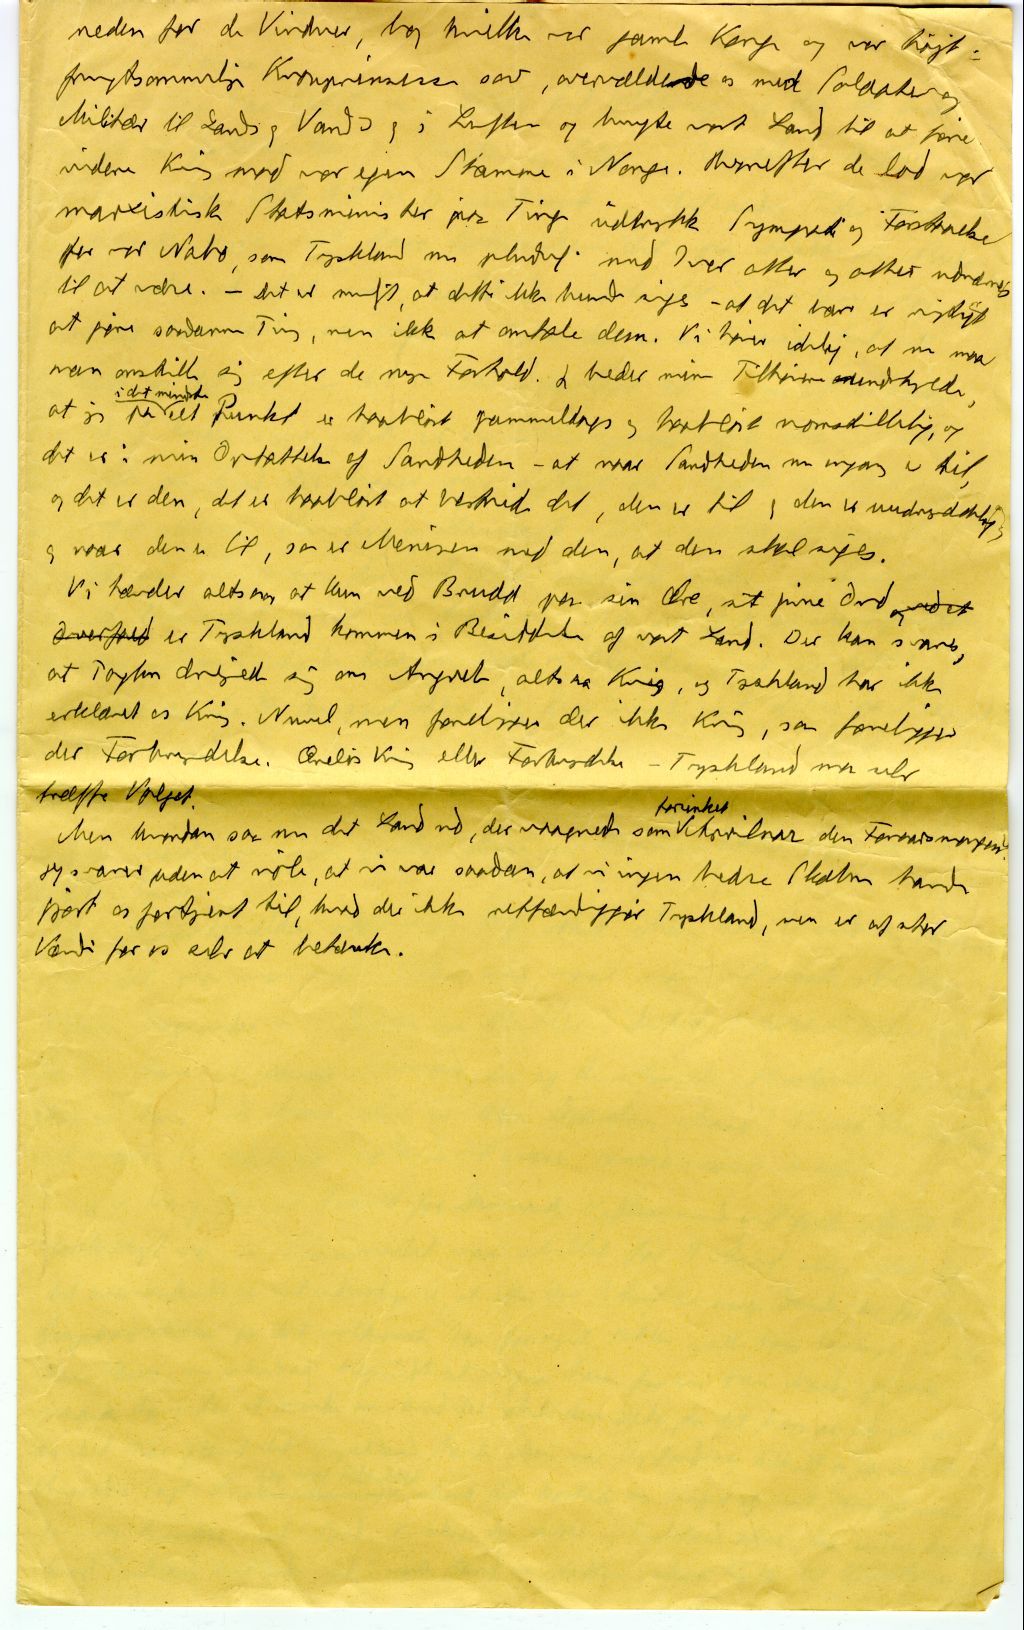 neden for de Vinduer, bag hvilke vor gamle Konge og vor højt-
frugtsommelige Kronprinsesse sov, overvældede os med Soldater og
Militær til Lands og Vands og i Luften og brugte vort Land til at føre
videre Krig mod vor egen Stamme i Norge. Hvorefter de lod vor
marxistiske Statsminister paa Tinge udtrykke Sympati og Forstaaelse
for vor Nabo, som Tyskland nu pludselig med Iver atter og atter
til at være. – Det er muligt, at dette ikke burde siges – at det bare er rigtigt
at gøre saadanne Ting, men ikke at omtale dem. Vi hører idelig, at nu maa
man omstille sig efter de nye Forhold. Jeg beder mine Tilhørere undskylde,
at jeg i det mindste paa eet Punkt er haabløst gammeldags og haabløst uomstillelig, og
det er i min Opfattelse af Sandheden – at naar Sandheden nu engang er til,
og det er den, det er haabløst at bestride det, den er til og den er uudryddelig,
og naar den er til, saa er Meningen med den, at den skal siges.
Vi hævder altsaa at kun ved Brud paa sin Ære, sit givne Ord og ved et
Overfald er Tyskland kommen i Besiddelse af vort Land. Der kan svares,
at Pagten drejede sig om Angreb, altsaa Krig, og Tyskland har ikke
erklæret os Krig. Nuvel, men foreligger der ikke Krig, saa foreligger
der Forbrydelse. Æreløs Krig eller Forbrydelse – Tyskland maa selv
træffe Valget.
Men hvordan saa nu det Land ud, der vaagnede som forinket den Foraarsmorgen?
Jeg svarer uden at nøle, at vi var saadan, at vi ingen bedre Skæbne havde
gjort os fortjent til, hvad der ikke retfærdiggør Tyskland, men er af stor
Værdi for os selv at betænke.